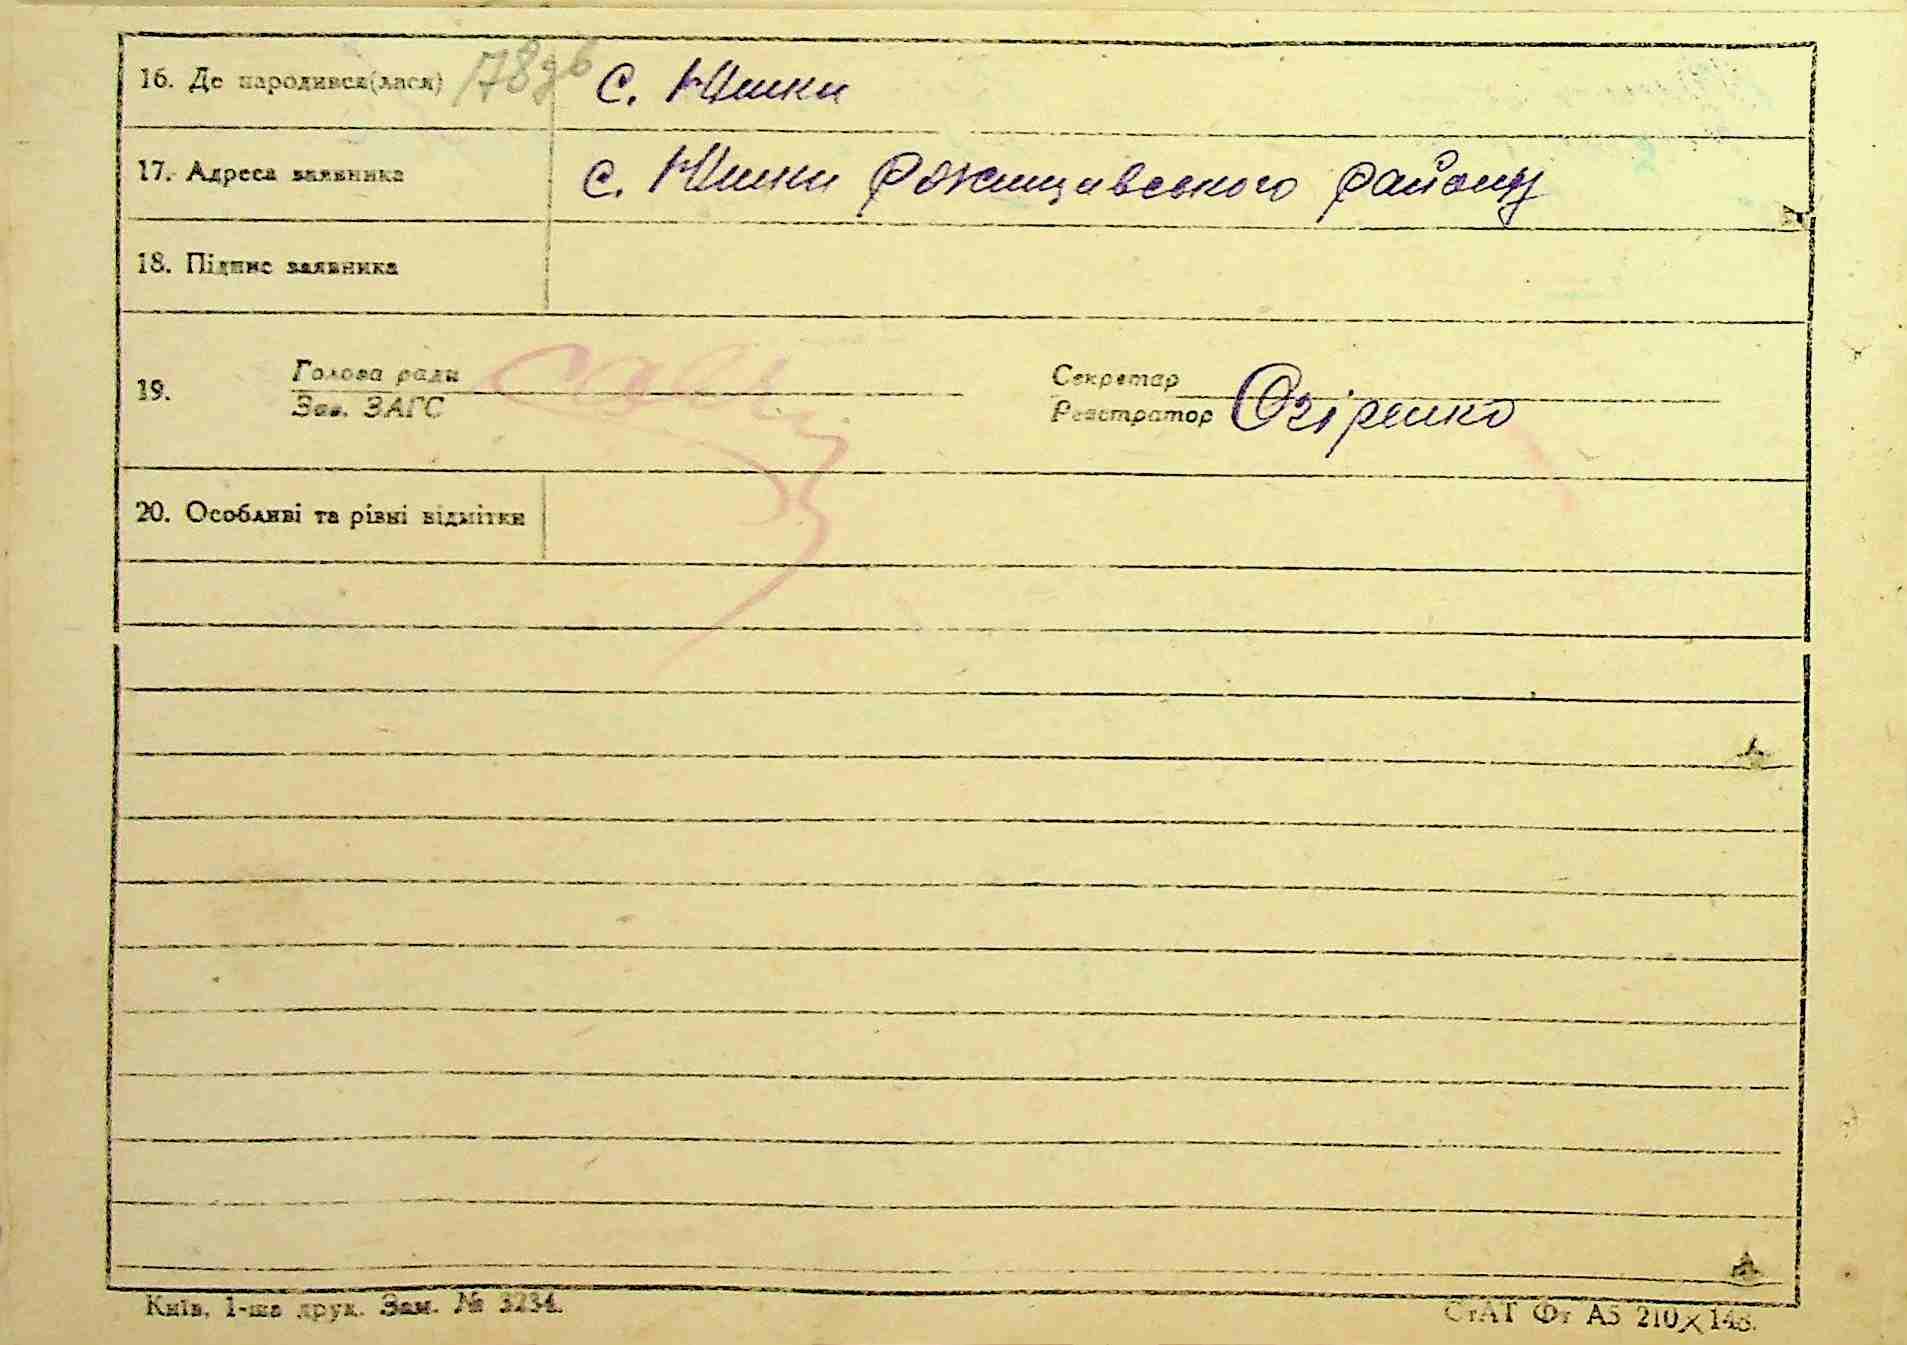 16. Де народився(лася) 178зв с.
17. Адреса заявника с. Рожищавського району
18. Підпис заявника
19. Голова ради Секретар
Зав. ЗАГС Реєстратор Огіренко
20. Особливі та різні відмітки
Київ, 1-ша друк. Зам. № 3234.
СтАТ Фт А5 210×148.